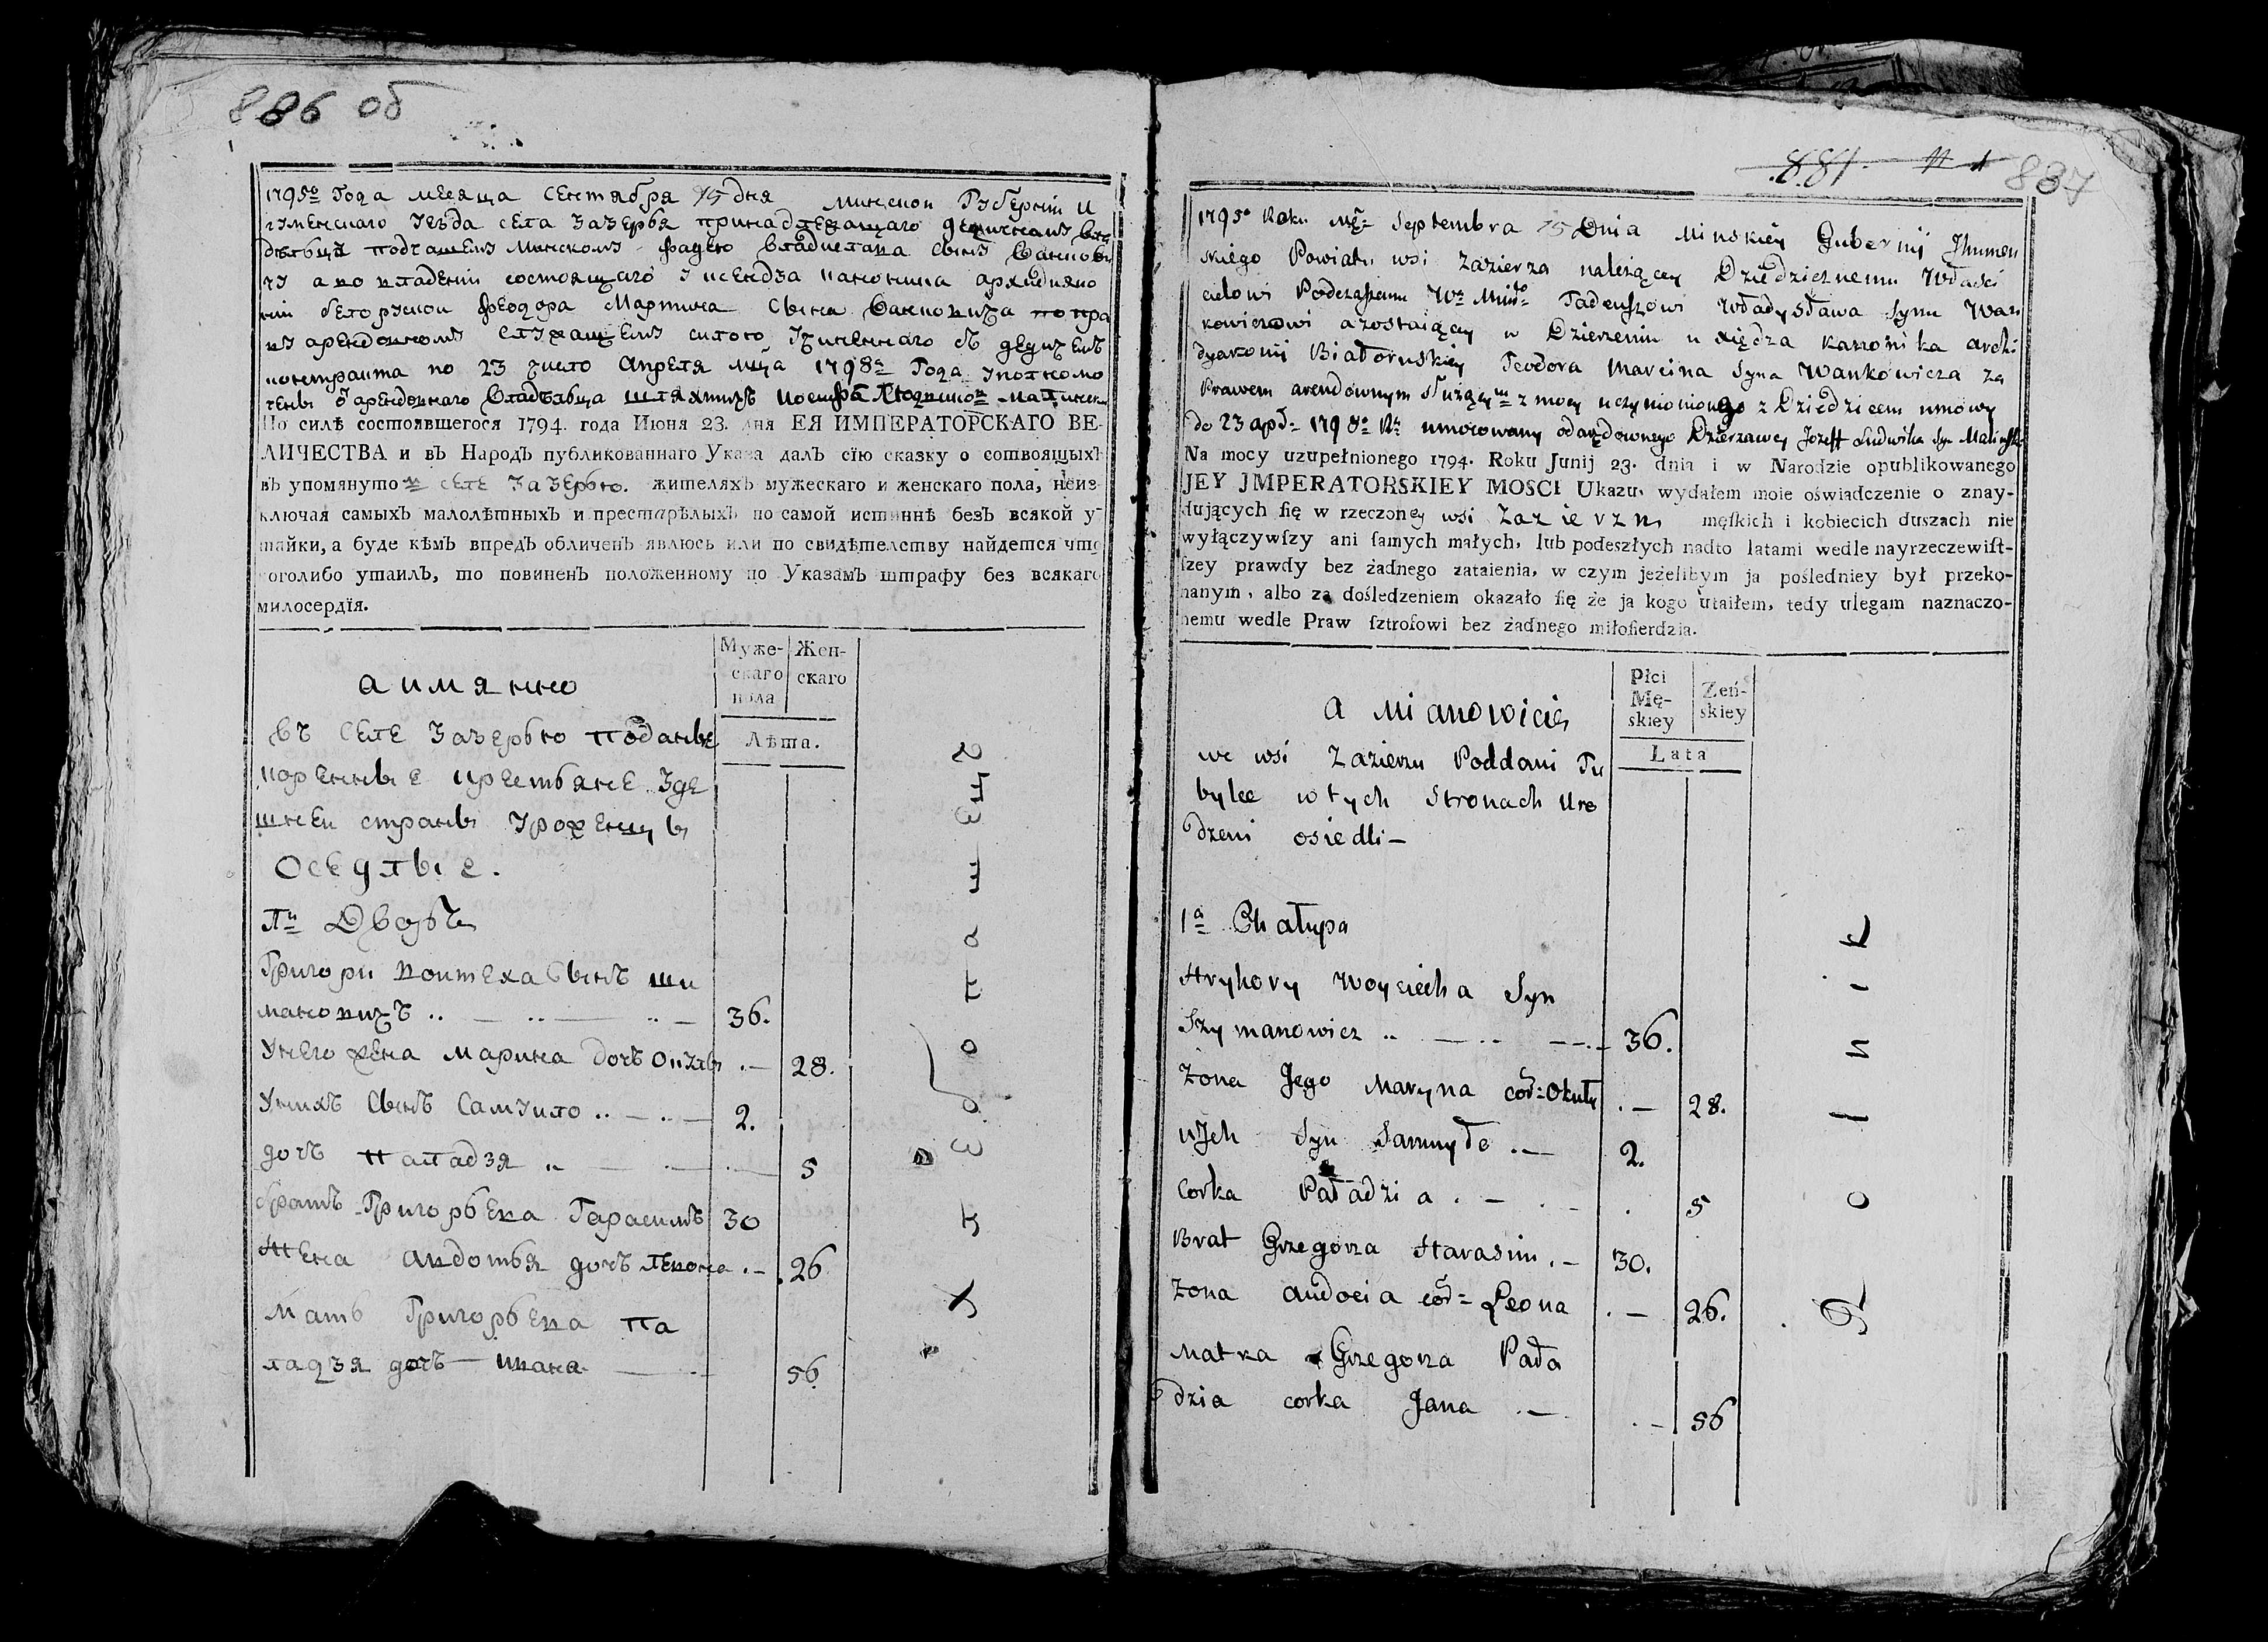 886 об
1795го Года месяца Сентября 15 дня Минскои Губернїи И
гуменскаго Уезда села Зазерья принадлежащаго дедичному вла
дельцу подчашему Минскому Фадею Владислава сыну Ваньков
чу а во владении состоящаго у ксендза каноника архидияко
нїи белоруской Феодора Мартина Сына Ваньковича по пра
ву арендовному служащему силою учиненнаго съ дедичемъ
контракта по 23 число Апреля мца 1798го Года уполномо
ченъ от арендовнаго Владельца шляхтичъ Иосифъ Людвиков Малински
По силѣ состоявшегося 1794. года Июня 23. дня ЕЯ ИМПЕРАТОРСКАГО ВЕ-
ЛИЧЕСТВА и въ Народъ публикованнаго Указа далъ сїю сказку о сотвоящыхъ
въ упомянутом селе Зазерью. жителяхъ мужескаго и женскаго пола, неиз-
ключая самыхъ малолѣтныхъ и престарѣлыхъ по самой истиннѣ безъ всякой у-
тайки, а буде кѣмъ впредъ обличенъ явлюсь или по свидѣтелству найдется что
коголибо утаилъ, то повиненъ положенному по Указамъ штрафу без всякаго
милосердїя.
Муже-
скаго
пола
Жен-
скаго
Лѣта.
а имянно
Въ Селе Зазерью поданые
коренные крестьяне Зде
шней страны уроженцы
Оседлые.
1й Дворъ
Григори Войтеха Сынъ Ши
мановичъ 36.
У него жена Марина дочъ Окулы 28.
У нихъ Сынъ Самуило 2.
дочъ Паладзя 5
братъ Григорьева Гарасимъ 30
Жена Авдотья дочъ Левона 26
Мать Григорьева Па
ладзя дочъ Ивана 56
Хлебопашец
881
887
1795o Roku Mca Septembra 15 Dnia Minskiey Gubernij Jhumen
skiego Powiatu wsi Zazierza należącey Dziedzicznemu Właści
cielowi Podczaszemu Wa Minso Tadeuszowi Władysława Synu Wan
kowiczowi a zostaiący w Dzierzeniu u xiędza kanonika archi
dyakonij Białoruskiey Teodora Marcina Syna Wankowicza za
Prawem arendownym służącym z mocy uczynionego z Dziedzicem umowy
do 23 apr 1798o Ru umocowany od arędownego Dzierzawcy Jozeff Ludwika Syn Malinski
Na mocy uzupełnionego 1794. Roku Junij 23. dnia i w Narodzie opublikowanego
JEY JMPERATORSKIEY MOSCI Ukazu, wydałem moie oświadczenie o znay-
dujących ſię w rzeczoney wsi Zazierzu męſkich i kobiecich duszach nie
wyłączywſzy ani ſamych małych, lub podeszłych nadto latami wedle nayrzeczewiſt-
ſzey prawdy bez żadnego zataienia, w czym jeżelibym ja pośledniey był przeko-
nanym, albo za dośledzeniem okazało ſię że ja kogo utaiłem, tedy ulegam naznaczo-
nemu wedle Praw ſztrofowi bez żadnego miłoſierdzia.
Płci
Mę-
skiey
Żeń-
skiey
Lata
a Mianowicie
we wsi Zazierzu Poddani Tu
bylce w tych Stronach Uro
dzeni osiedli –
1a Chałupa
Hryhory Woyciecha Syn
Szymanowicz 36.
Żona Jego Maryna cor: Okuły 28.
u Jch Syn Samuyło 2.
Corka Paładzia 5
Brat Grzegorza Harasim 30.
Żona Audocia cor= Leona 26.
Matka Grzegorza Pała
dzia corka Jana 56
Rolnik